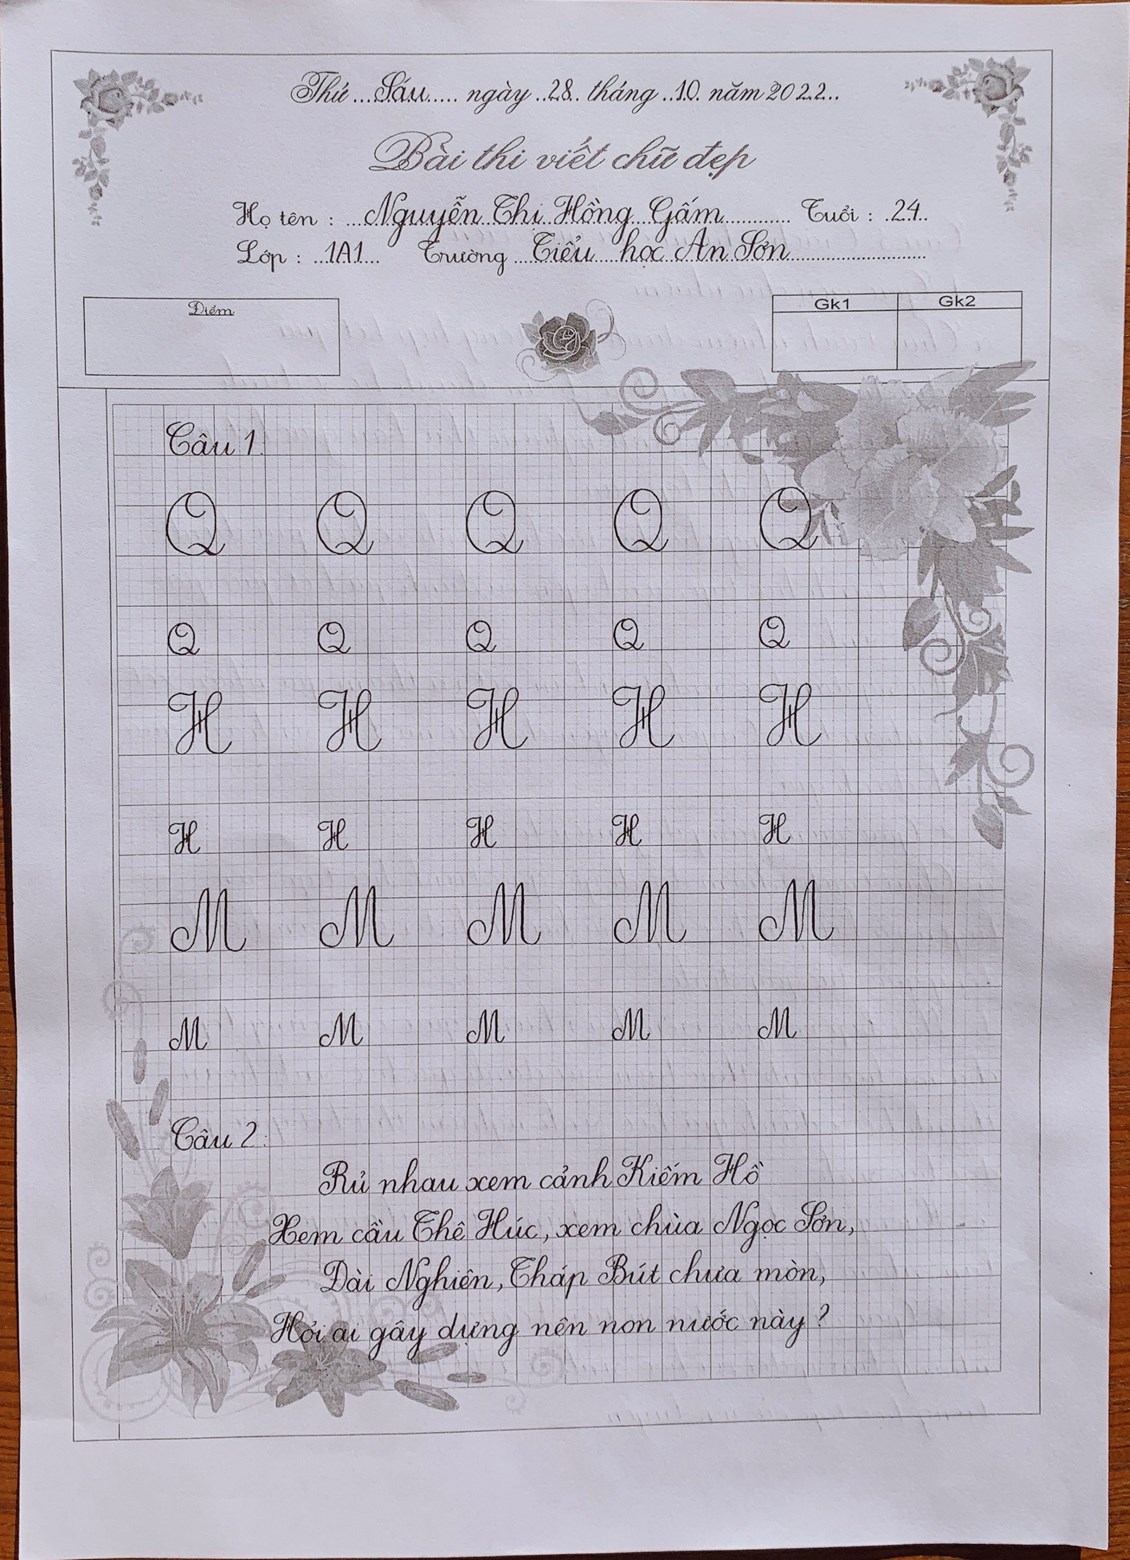 Thứ ... Sáu ..... ngày ..28.. tháng ..10. năm 2022..
Bài thi viết chữ đẹp
Họ tên : ...Nguyễn Thị Hồng Gấm............ Tuổi : .24..
Lớp : ...1A1... Trường ...Tiểu học An Sơn.........................
Điểm
Gk1 Gk2
Câu 1.
Q Q Q Q Q
Q Q Q Q Q
H H H H H
H H H H H
M M M M M
M M M M M
Câu 2:
Rủ nhau xem cảnh Kiếm Hồ
Xem cầu Thê Húc, xem chùa Ngọc Sơn,
Đài Nghiên, Tháp Bút chưa mòn,
Hỏi ai gây dựng nên non nước này ?